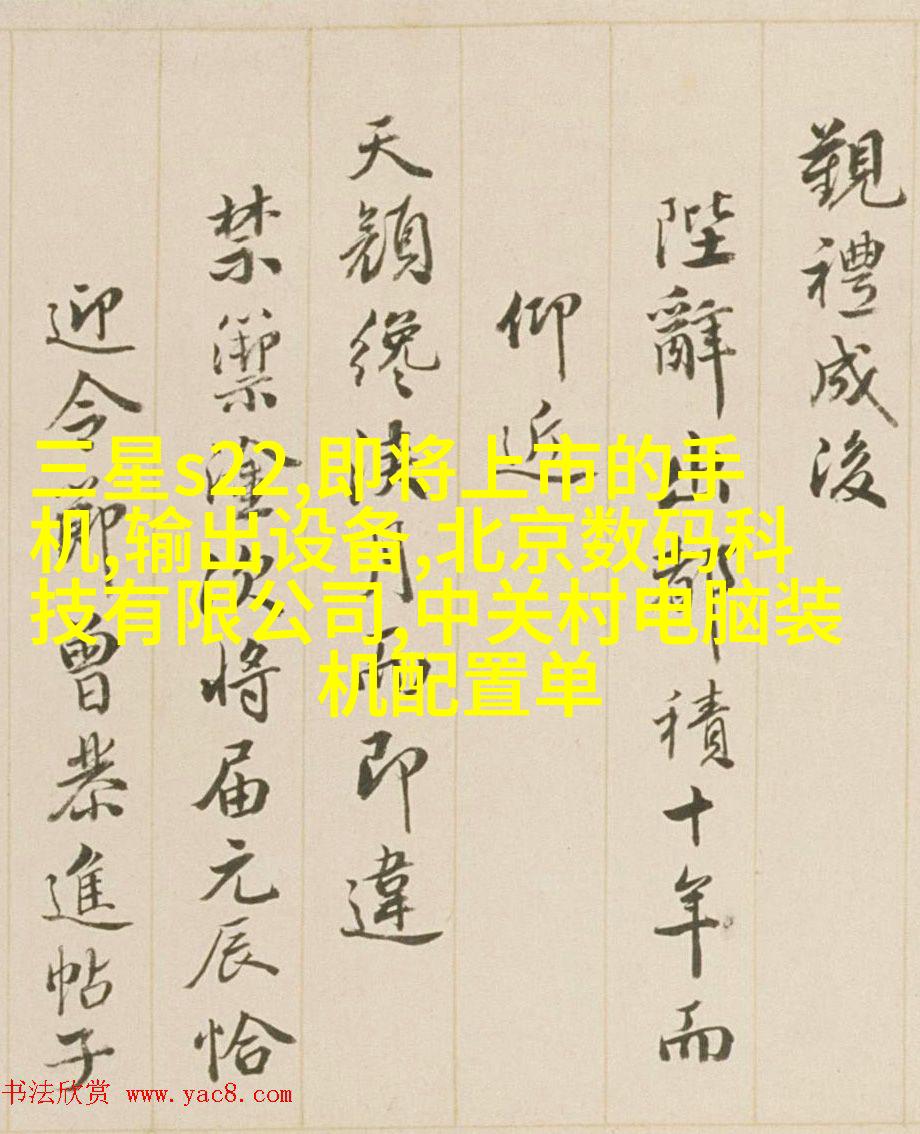 覲禮成後
陛辭出都積十年而
仰近
天顏纔浹月而即違
禁禦次將届元辰恰
迎令節曾恭進帖子
三星s22,即将上市的手
机,输出设备,北京数码科
技有限公司,中关村电脑装
机配置单
书法欣赏 www.yac8.com